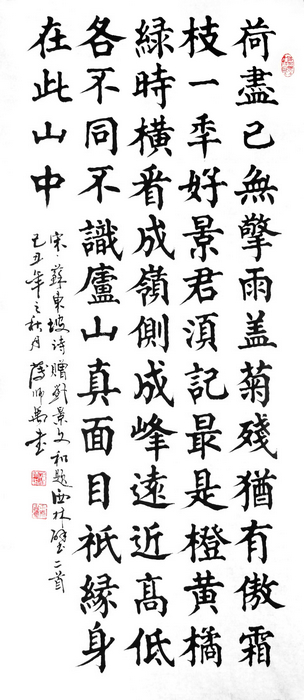 荷盡已無擎雨盖菊殘猶有傲霜
枝一秊好景君湏記最是橙黄橘
緑時橫看成嶺側成峰遠近髙低
各不同不識廬山真面目衹緣身
在此山中
宋、蘇東坡诗贈刘景文和题西林壁二首
己丑年之秋月